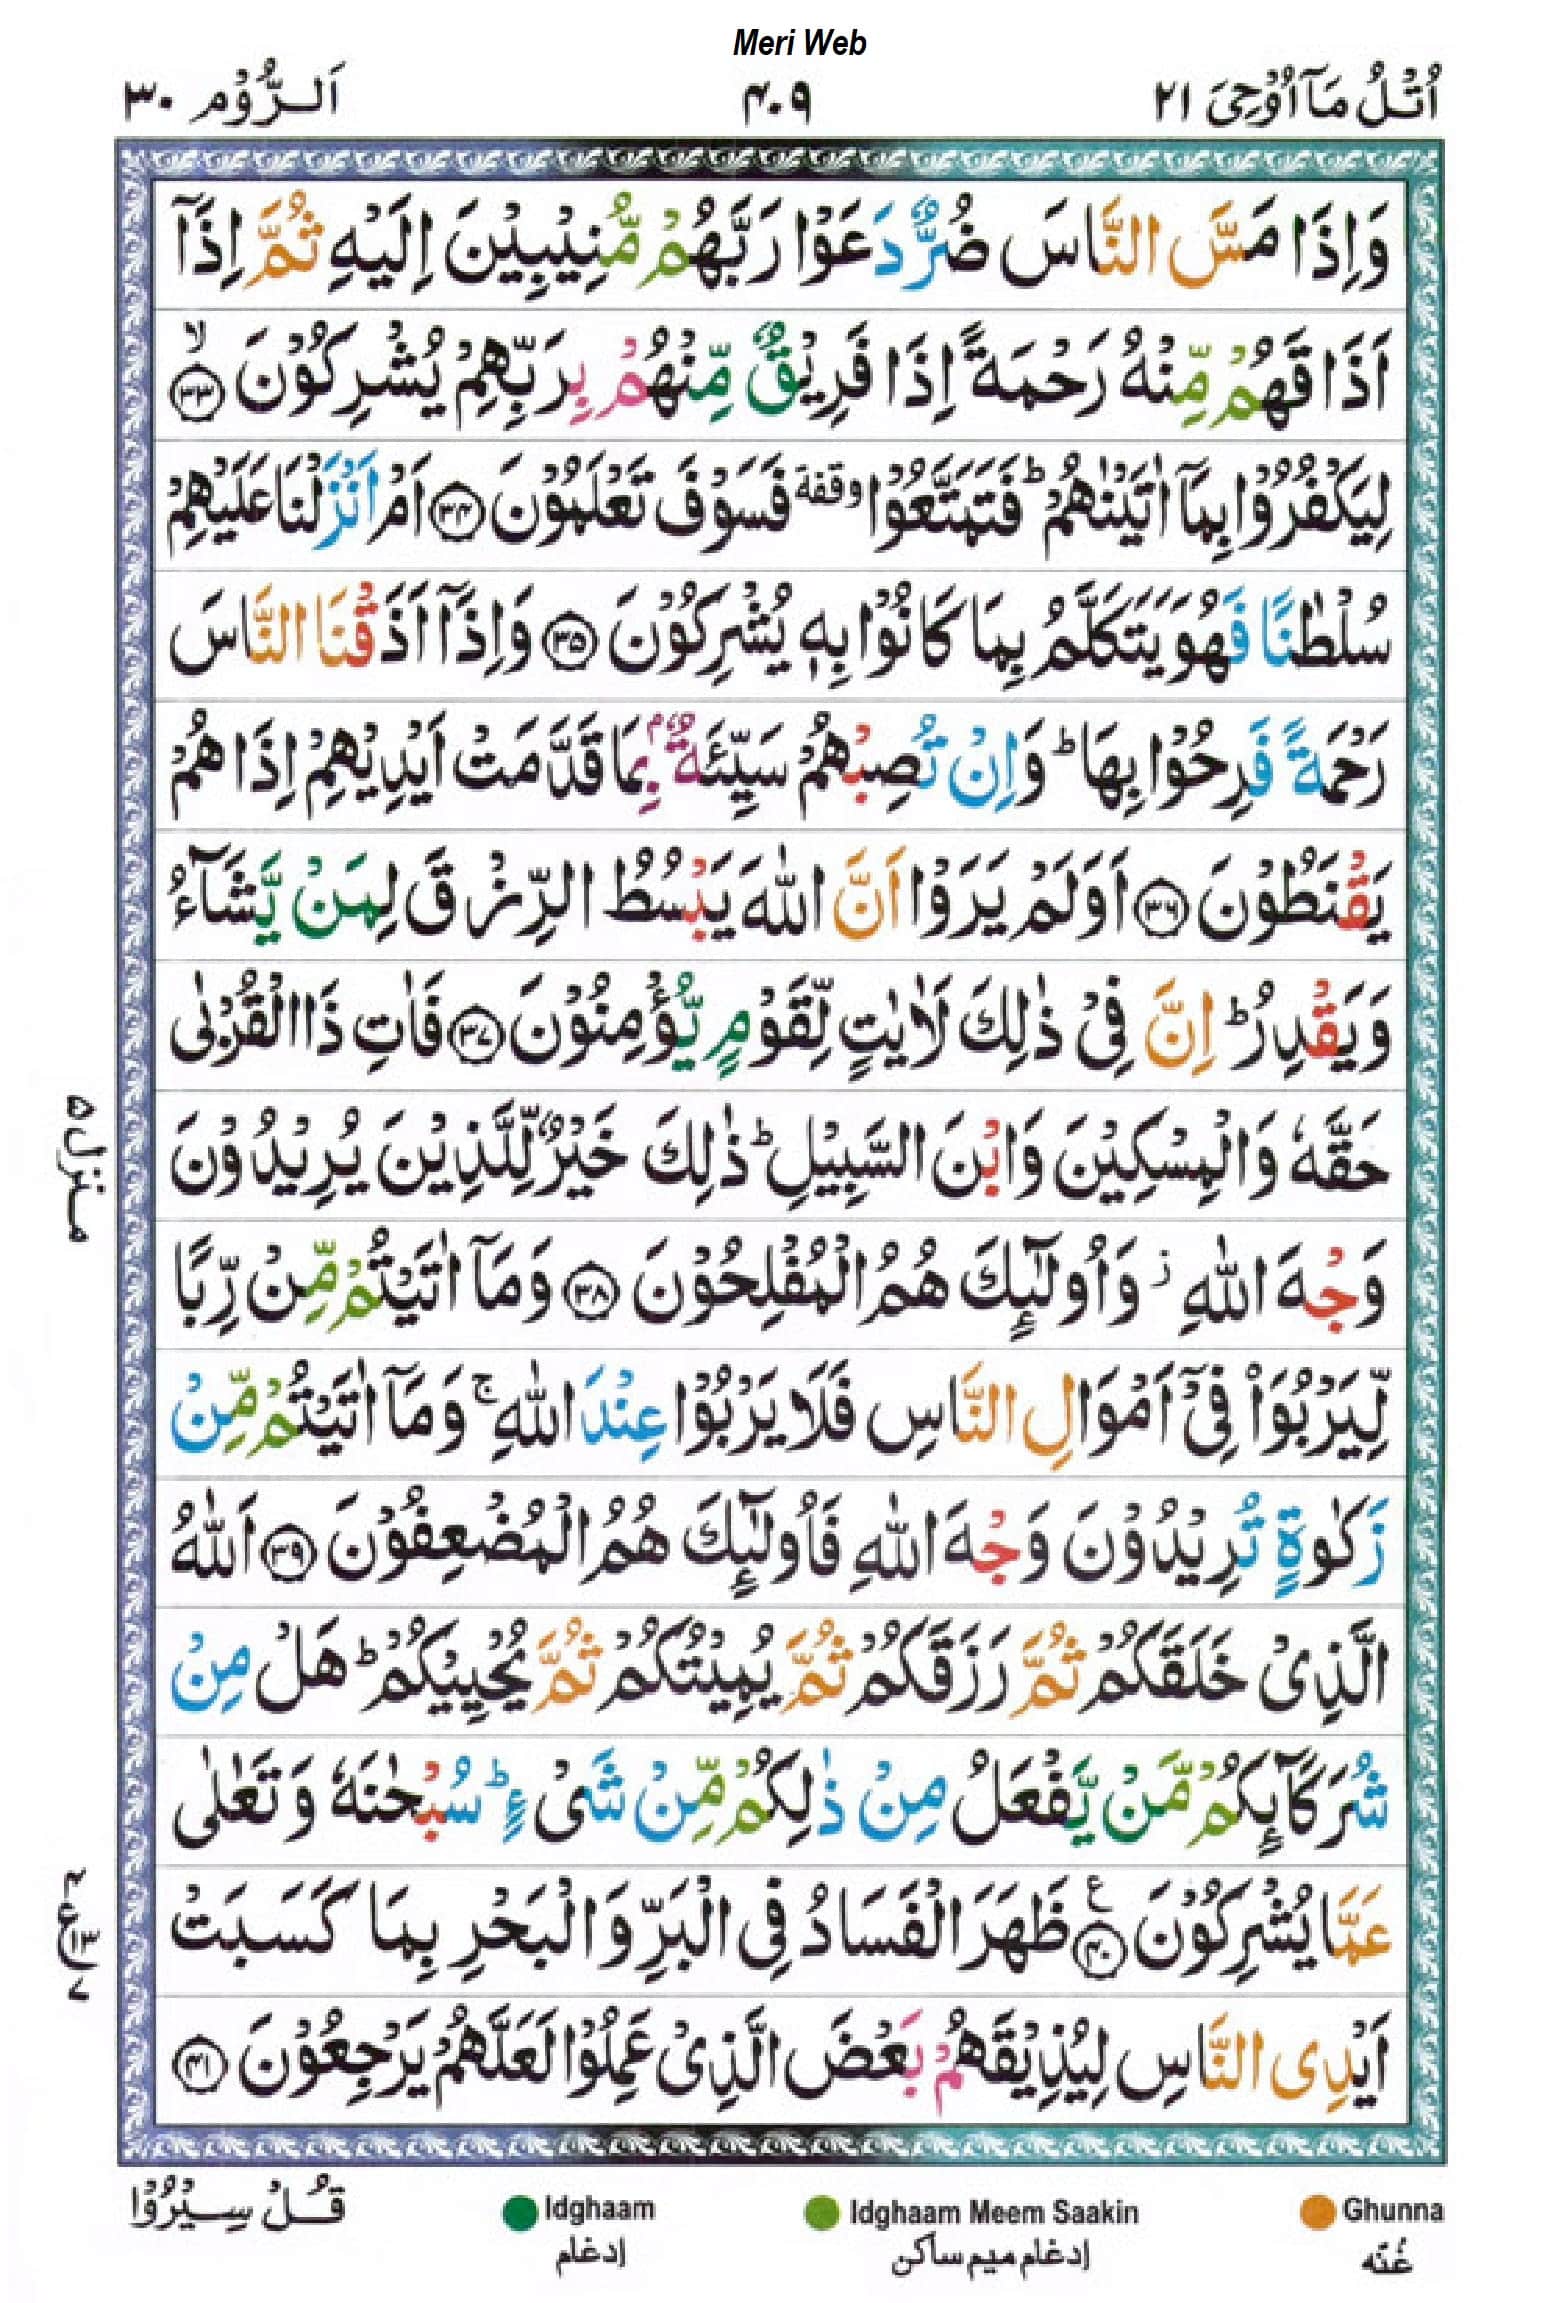 Meri Web
اُتْلُ مَآ اُوْحِىَ ۲۱
۴۰۹
اَلرُّوْم ۳۰
وَاِذَا مَسَّ النَّاسَ ضُرٌّ دَعَوْا رَبَّهُمْ مُّنِيْبِيْنَ اِلَيْهِ ثُمَّ اِذَآ
اَذَاقَهُمْ مِّنْهُ رَحْمَةً اِذَا فَرِيْقٌ مِّنْهُمْ بِرَبِّهِمْ يُشْرِكُوْنَ ۙ۳۳
لِيَكْفُرُوْا بِمَآ اٰتَيْنٰهُمْ ؕ فَتَمَتَّعُوْا وقفة فَسَوْفَ تَعْلَمُوْنَ ۳۴ اَمْ اَنْزَلْنَا عَلَيْهِمْ
سُلْطٰنًا فَهُوَ يَتَكَلَّمُ بِمَا كَانُوْا بِهٖ يُشْرِكُوْنَ ۳۵ وَاِذَآ اَذَقْنَا النَّاسَ
رَحْمَةً فَرِحُوْا بِهَا ؕ وَاِنْ تُصِبْهُمْ سَيِّئَةٌۢ بِمَا قَدَّمَتْ اَيْدِيْهِمْ اِذَا هُمْ
يَقْنَطُوْنَ ۳۶ اَوَلَمْ يَرَوْا اَنَّ اللّٰهَ يَبْسُطُ الرِّزْقَ لِمَنْ يَّشَآءُ
وَيَقْدِرُ ؕ اِنَّ فِىْ ذٰلِكَ لَاٰيٰتٍ لِّقَوْمٍ يُّؤْمِنُوْنَ ۳۷ فَاٰتِ ذَا الْقُرْبٰى
حَقَّهٗ وَالْمِسْكِيْنَ وَابْنَ السَّبِيْلِ ؕ ذٰلِكَ خَيْرٌ لِّلَّذِيْنَ يُرِيْدُوْنَ
وَجْهَ اللّٰهِ ز وَاُولٰٓئِكَ هُمُ الْمُفْلِحُوْنَ ۳۸ وَمَآ اٰتَيْتُمْ مِّنْ رِّبًا
لِّيَرْبُوَا۟ فِىْٓ اَمْوَالِ النَّاسِ فَلَا يَرْبُوْا عِنْدَ اللّٰهِ ۚ وَمَآ اٰتَيْتُمْ مِّنْ
زَكٰوةٍ تُرِيْدُوْنَ وَجْهَ اللّٰهِ فَاُولٰٓئِكَ هُمُ الْمُضْعِفُوْنَ ۳۹ اَللّٰهُ
الَّذِىْ خَلَقَكُمْ ثُمَّ رَزَقَكُمْ ثُمَّ يُمِيْتُكُمْ ثُمَّ يُحْيِيْكُمْ ؕ هَلْ مِنْ
شُرَكَآئِكُمْ مَّنْ يَّفْعَلُ مِنْ ذٰلِكُمْ مِّنْ شَىْءٍ ؕ سُبْحٰنَهٗ وَتَعٰلٰى
عَمَّا يُشْرِكُوْنَ ۴۰ ع ظَهَرَ الْفَسَادُ فِى الْبَرِّ وَالْبَحْرِ بِمَا كَسَبَتْ
اَيْدِى النَّاسِ لِيُذِيْقَهُمْ بَعْضَ الَّذِىْ عَمِلُوْا لَعَلَّهُمْ يَرْجِعُوْنَ ۴۱
منزل ۵
ع ۴ ۱۳ ۷
Ghunna
غُنّه
Idghaam Meem Saakin
إدغام ميم ساكن
Idghaam
إدغام
قُلْ سِيْرُوْا